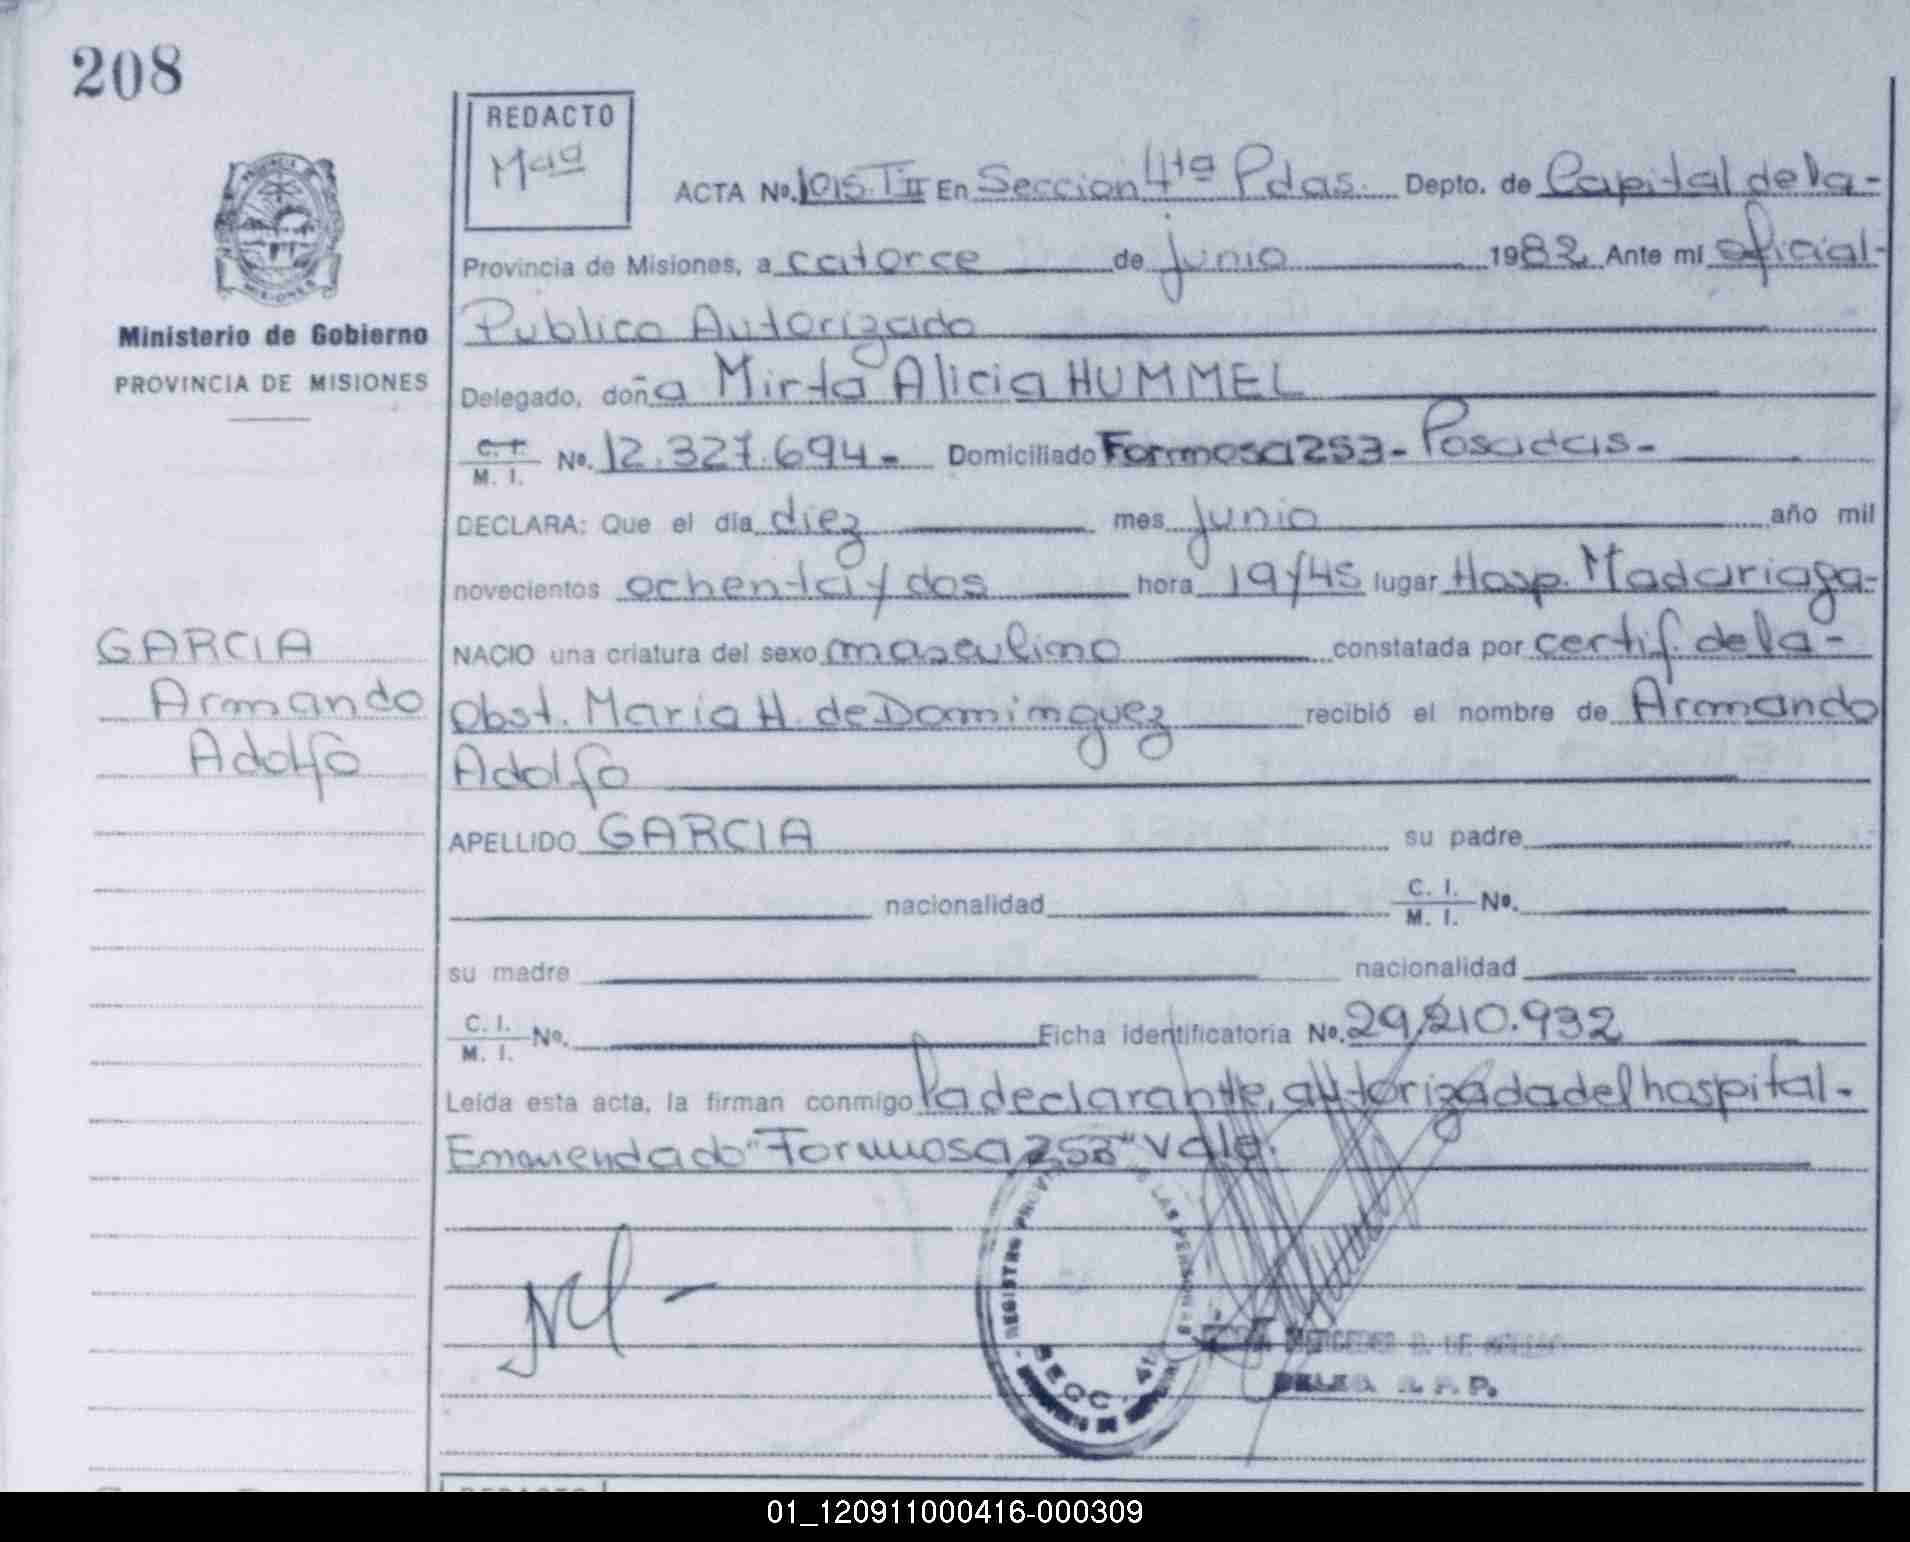 208
REDACTO
Mqq
ACTA No. 1015. T II En Seccion 4ta Pdas. Depto. de Capital de la-
Provincia de Misiones, a catorce de junio 1982 Ante mi oficial-
Publico Autorizado
Ministerio de Gobierno
PROVINCIA DE MISIONES
Delegado, doña Mirta Alicia HUMMEL
C. I. M. I. No. 12.327.694- Domiciliado Formosa 253- Posadas-
DECLARA: Que el día diez mes junio año mil
novecientos ochenta y dos hora 19/45 lugar Hosp. Madariaga-
NACIO una criatura del sexo masculino constatada por certif. de la-
GARCIA
Armando
Adolfo
Obst. Maria H. de Dominguez recibió el nombre de Armando
Adolfo
APELLIDO GARCIA su padre
nacionalidad C. I. M. I. No.
su madre nacionalidad
C. I. M. I. No. Ficha identificatoria No. 29.210.932
Leída esta acta, la firman conmigo la declarante, autorizada del hospital-
Enmendado "Formosa 253" Vale.
REGISTRO PROVINCIAL DE LAS PERSONAS
SECC. 4ta
DELEG. R. P. P.
REDACTO
01_120911000416-000309